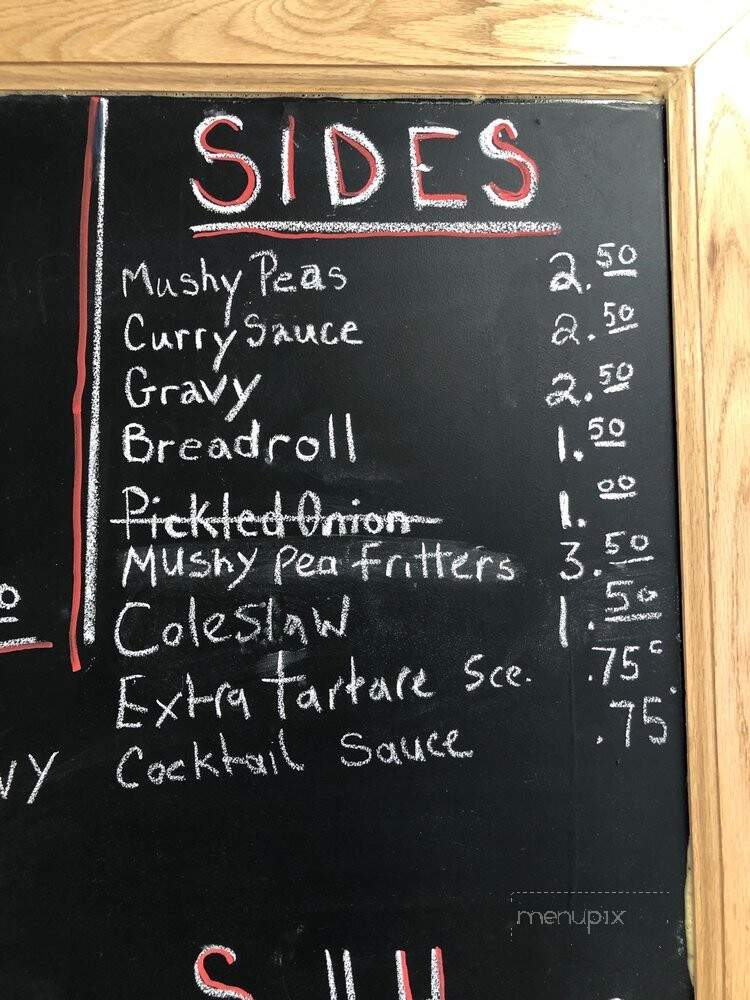 SIDES
Mushy Peas 2.50
Curry Sauce 2.50
Gravy 2.50
Breadroll 1.50
Pickled Onion 1.00
Mushy Pea Fritters 3.50
Coleslaw 1.50
Extra Tartare Sce. .75c
Cocktail Sauce .75
VY
menupix